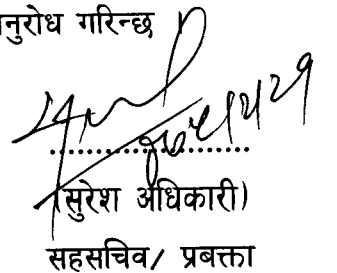 नुरोध गरिन्छ
....................
(सुरेश अधिकारी)
सहसचिव/ प्रबक्ता